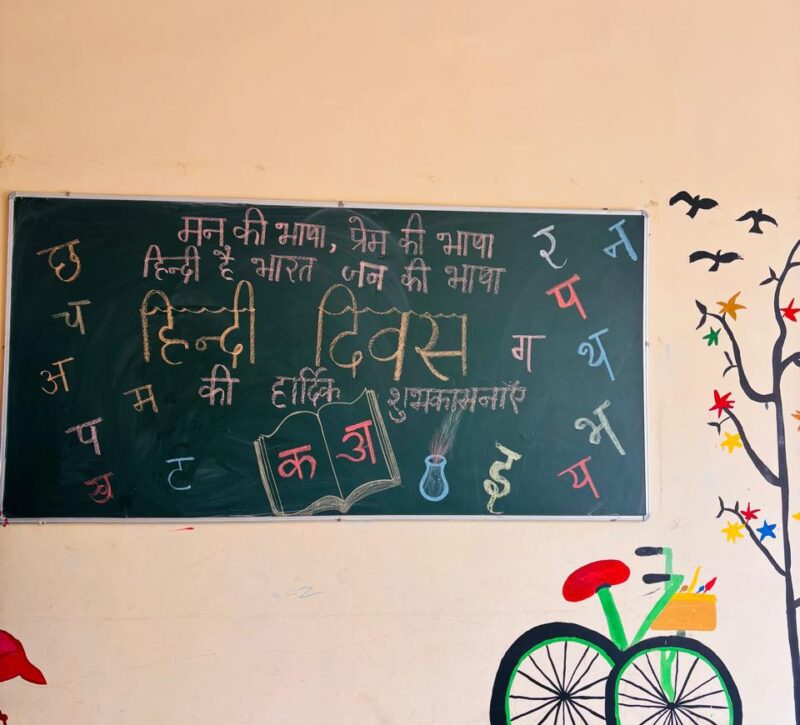 मन की भाषा, प्रेम की भाषा
हिन्दी है भारत जन की भाषा
हिन्दी दिवस
की हार्दिक शुभकामनाएँ
छ
च
अ
म
प
ख
ट
क अ
इ
ग
इ
न
प
थ
भ
य